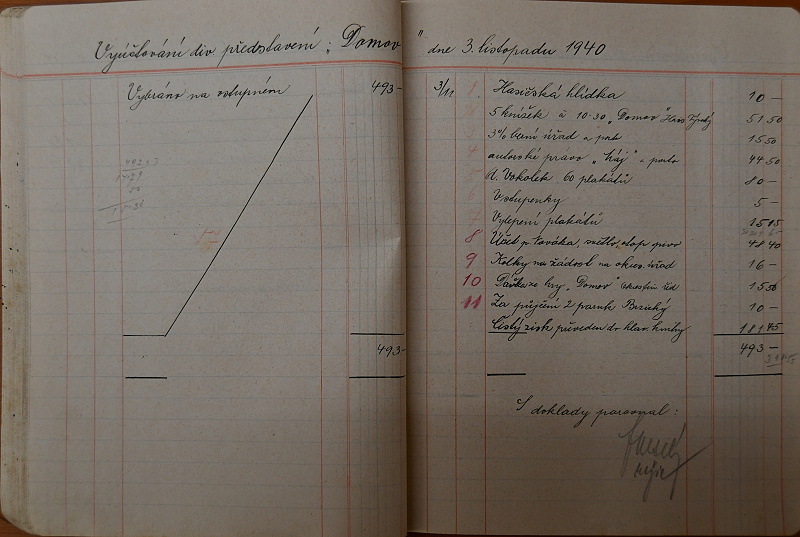 Vyúčtování div. představení: „Domov“ dne 3. listopadu 1940
Vybráno na vstupném 493-
493-
3/11 1. Hasičská hlídka 10 -
5 knížek à 10.30 „Domov“ 51 50
3% berní úřad a porto 15 50
autorské právo „Háj“ a porto 44 50
d. Vokolek 60 plakátů 80 -
Vstupenky 5 -
7 Vylepení plakátů 15 15
8 Účet p. Nováka, světlo, otop, pivo 48 40
9 Kolky na žádost na okres. úřad 16 -
10 Dávka ze hry „Domov“ 15 50
11 Za půjčení 2 paruk 10 -
Čistý zisk převeden do hlav. knihy 181 45
493 -
S doklady porovnal: